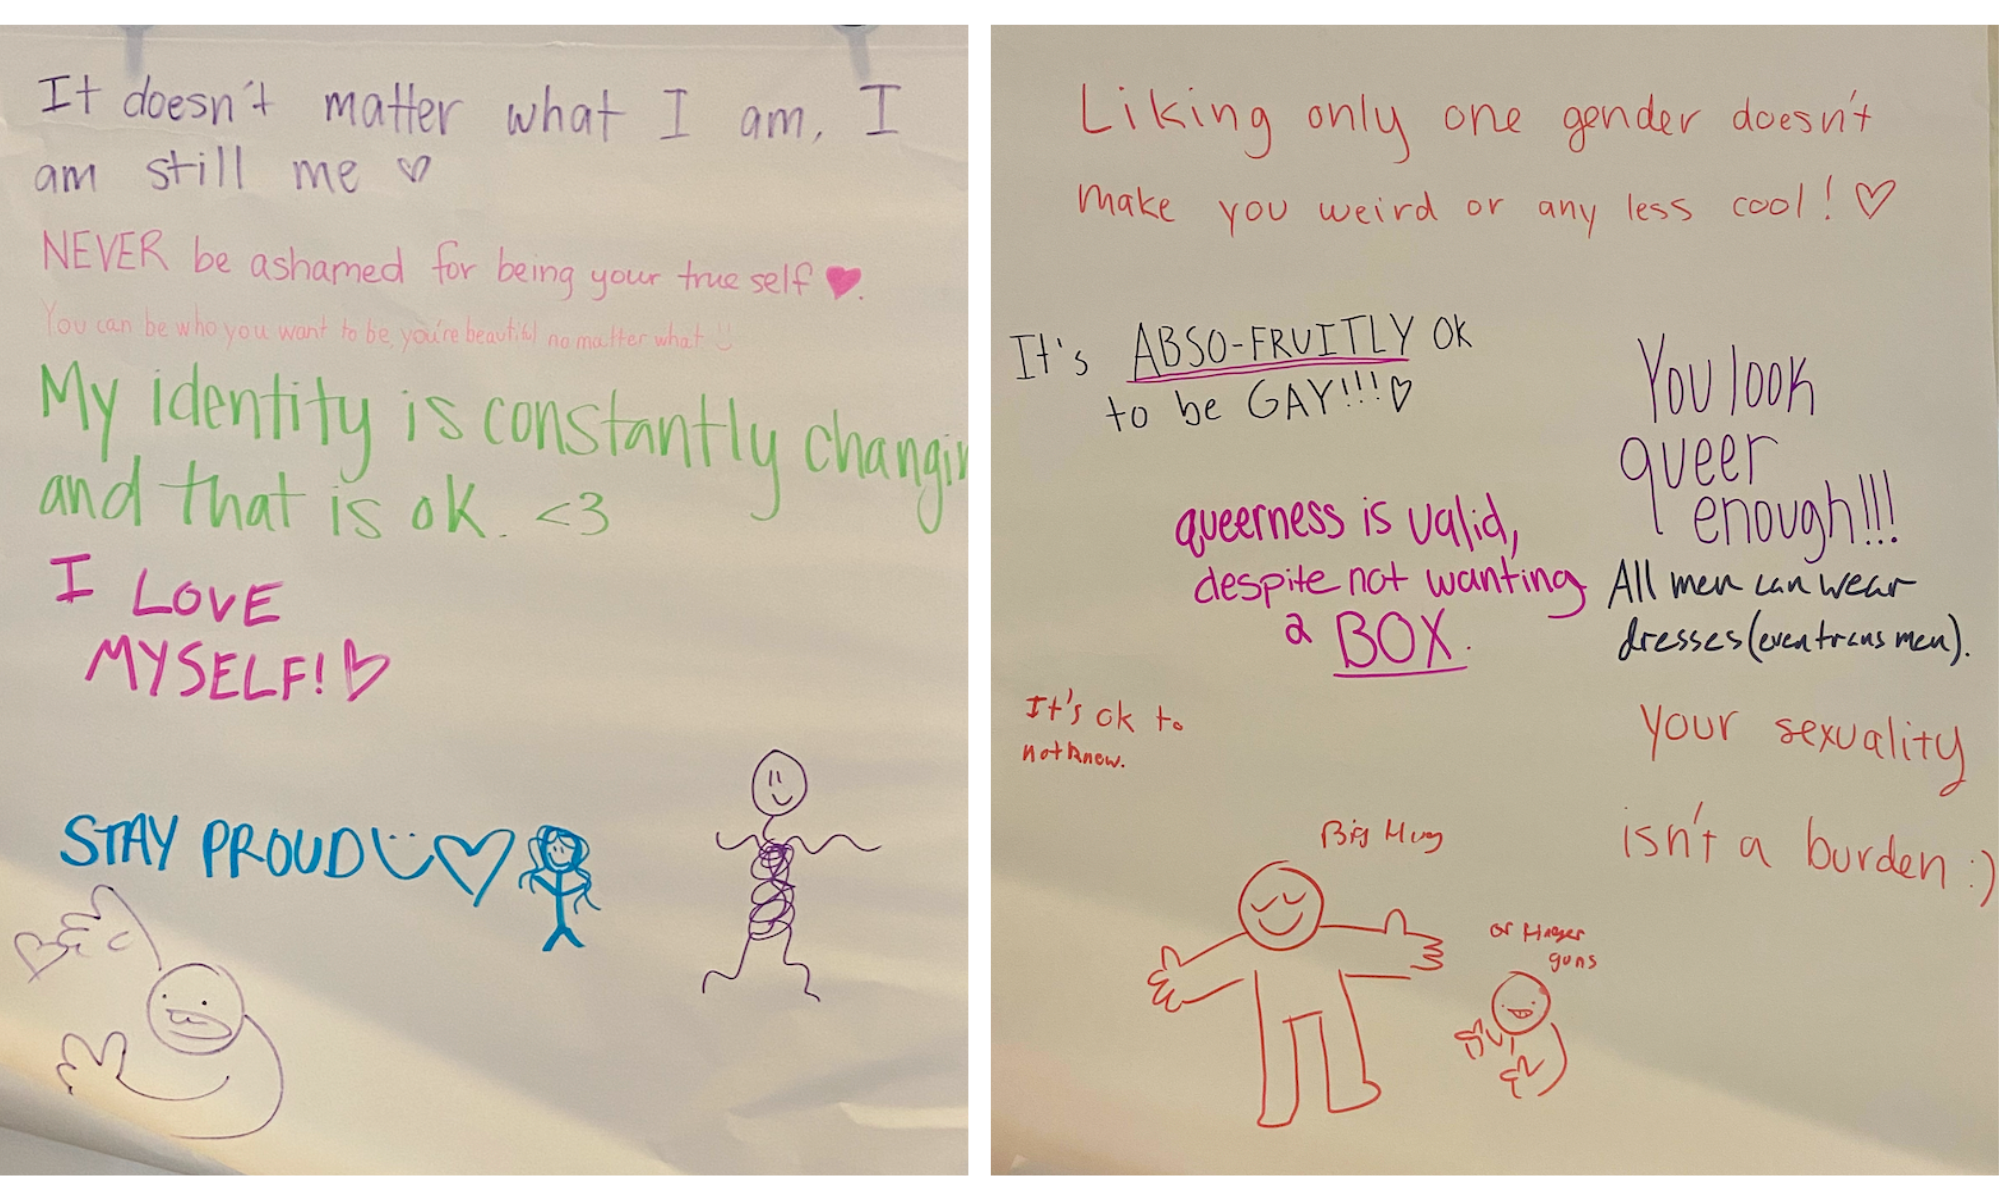 It doesn't matter what I am, I
am still me ♡
NEVER be ashamed for being your true self ♥.
You can be who you want to be, you're beautiful no matter what
My identity is constantly changin
and that is ok. <3
I LOVE
MYSELF! ♡
STAY PROUD
Liking only one gender doesn't
make you weird or any less cool! ♡
It's ABSO-FRUITLY OK
to be GAY!!! ♡
You look
queer
enough!!!
queerness is valid,
despite not wanting
a BOX.
All men can wear
dresses (even trans men).
It's ok to
not know.
your sexuality
isn't a burden :)
Big Hug
or finger
guns